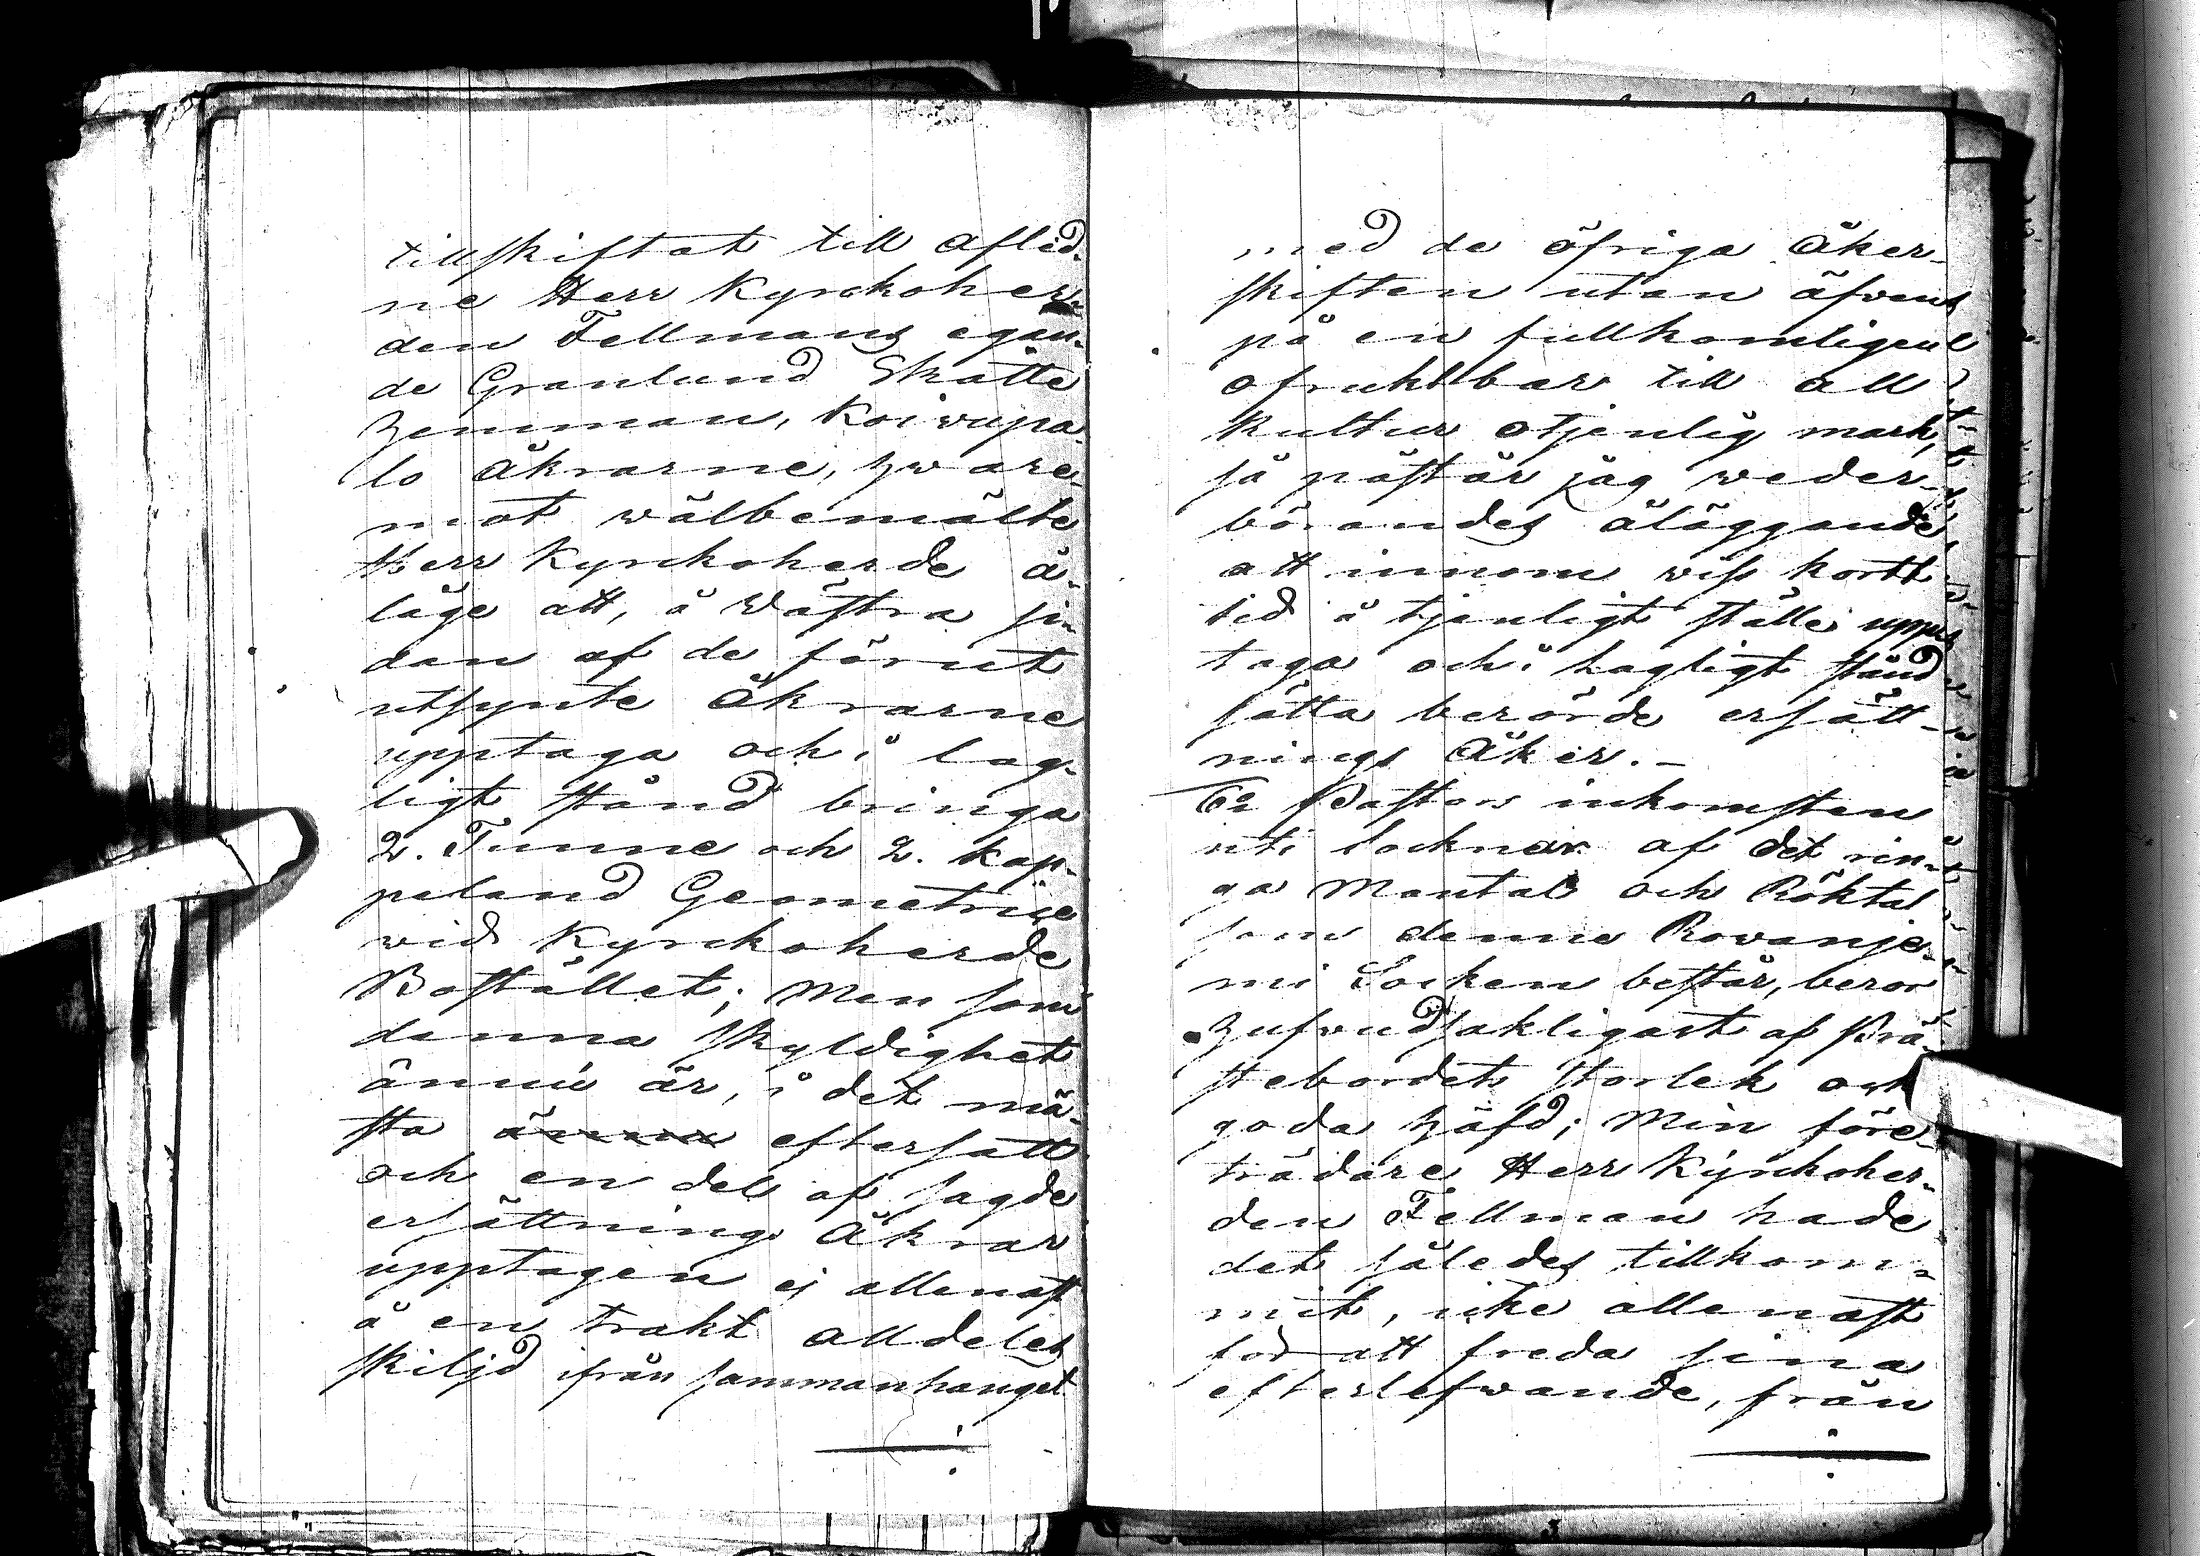 tillskiftat till aflid-
ne Herr Kyrckoher-
den Fellmans egan-
de Granlund Skatte
Hemman, Koiwupa-
lo Åkrarne, hware-
mot wälbemälte
Herr Kyrckoherde å-
läge att, å Wästra si-
dan af de förut
utsynte Åkrarne
upptaga och i lag-
ligt stånd bringa
2. Tunne och 2. kap-
peland Geometrice
wid Kyrckoherde
Bostället; Men som
denna skyldighet
ännu är, i det mä-
sta eftersatt
och en del af sagde
ersättnings Åkrar
upptagen ej allenast
å en trakt alldeles
skiljd ifrån sammanhanget
med de öfriga Åker-
skiften utan äfwen
på en fullkomligen
ofruktbar till all
Kultur otjenlig mark,
så påstår jag weder-
börandes åläggande
att innom wiss kort
tid å tjenligt ställe upp-
taga och i lagligt stånd
sätta berörde ersätt-
nings Åker.-
Er Pastors inkomsten
uti Socknar af det rin-
ga Mantal och Röktal
som denne Rowanje-
mi Socken består, beror
hufwudsakligast af Prä-
stebordets storlek och
goda häfd; Min före-
trädare Herr Kyrckoher-
den Fellman hade
det således tillkom-
mit, icke allenast
för att freda sina
efterlefwande, från